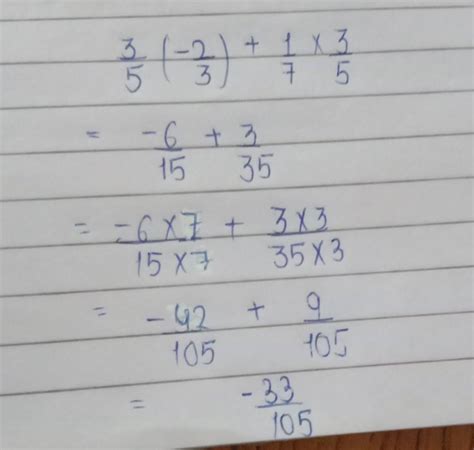 3/5 (-2/3) + 1/7 × 3/5
= -6/15 + 3/35
= -6×7/15×7 + 3×3/35×3
= -42/105 + 9/105
= -33/105